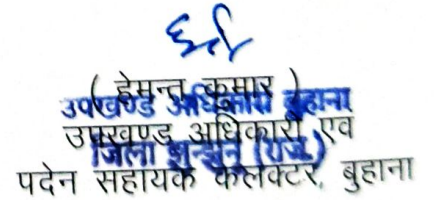 ( हेमन्त कुमार )
उपखण्ड अधिकारी बुहाना
उपखण्ड अधिकारी एवं
जिला झुन्झुनू (राज.)
पदेन सहायक कलक्टर, बुहाना